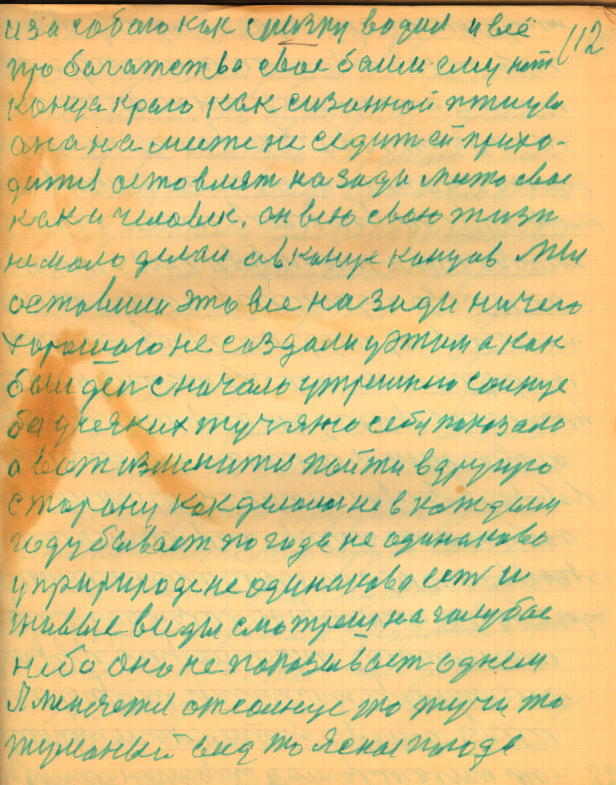 112
и за собого как грязни водил и всё
про богатство свое были ему нет
конца крало как сизонной птицы
она на месте не сидит ей прихо-
дится оставлят на зади место свое
как и человек. он всю свою жизн
немало делал а в конце концов мы
оставили это все на зади ничего
хорошого не создали у этим а как
был ден сначало утрешнио солнце
без усяких туч ясно себя показало
а вест изменится пойти в другую
сторону как делаем не в каждым
году бывает погода не одинаково
у пририроде не одинаково ест и
живые виды смотреш на голубое
небо оно не показывает одним
Я меняется от солнце то тучи то
туманый вид то Ясная погода